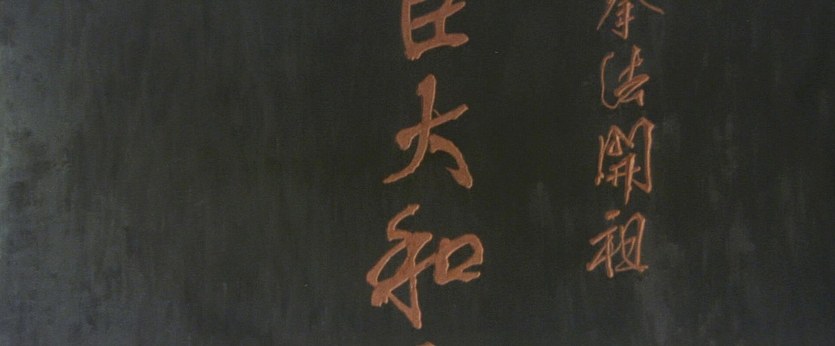 拳法開祖
臣大和